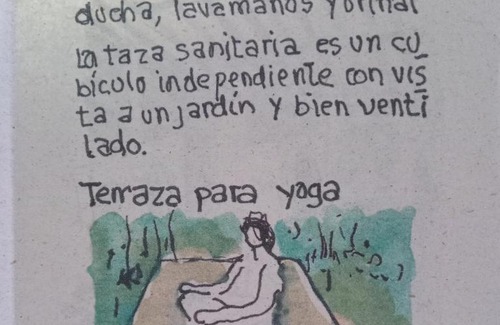 ducha, lavamanos y orinal
la taza sanitaria es un cu
bículo independiente con vis
ta a un jardín y bien venti
lado.
Terraza para yoga